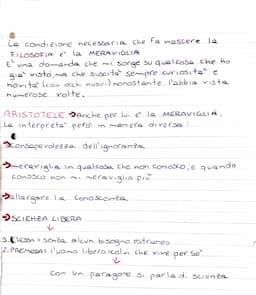 La condizione necessaria che fa nascere la
FILOSOFIA e' la MERAVIGLIA
E' una domanda che mi sorge su qualcosa che ho
gia' visto, ma che suscita' sempre curiosita' e
novita' (con occhi nuovi) nonostante l'abbia vista
numerose volte.
ARISTOTELE → Anche per lui e' la MERAVIGLIA.
La interpreta pero' in maniera diversa:
→ consapevolezza dell'ignoranza
→ meraviglia in qualcosa che non conosco, e quando
conosco non mi meraviglio piu'
→ allargare la conoscenza
→ SCIENZA LIBERA
1. senza alcun bisogno estraneo
2. PREMESSA: l'uomo libero colui che vive per se'
con un paragone si parla di scienza